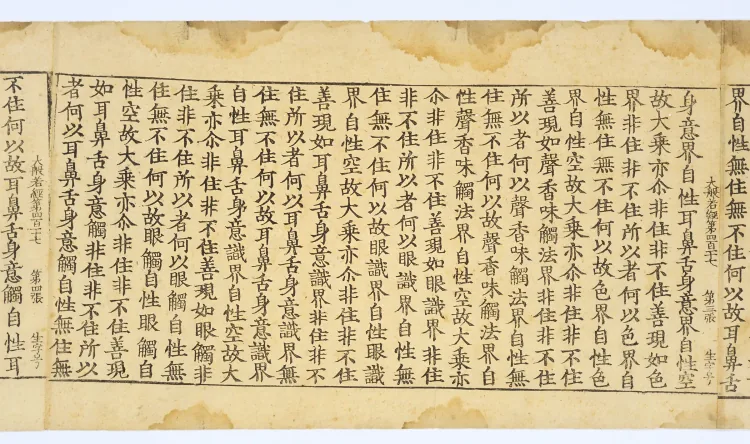 界自性無住無不住何以故耳鼻舌
大般若經第四百一十七 第三張 生字号
身意界自性耳鼻舌身意界自性空
故大乘亦尒非住非不住善現如色
界非住非不住所以者何以色界自
性無住無不住何以故色界自性色
界自性空故大乘亦尒非住非不住
善現如聲香味觸法界非住非不住
所以者何以聲香味觸法界自性無
住無不住何以故聲香味觸法界自
性聲香味觸法界自性空故大乘亦
尒非住非不住善現如眼識界非住
非不住所以者何以眼識界自性無
住無不住何以故眼識界自性眼識
界自性空故大乘亦尒非住非不住
善現如耳鼻舌身意識界非住非不
住所以者何以耳鼻舌身意識界無
住無不住何以故耳鼻舌身意識界
自性耳鼻舌身意識界自性空故大
乘亦尒非住非不住善現如眼觸非
住非不住所以者何以眼觸自性無
住無不住何以故眼觸自性眼觸自
性空故大乘亦尒非住非不住善現
如耳鼻舌身意觸非住非不住所以
者何以耳鼻舌身意觸自性無住無
大般若經第四百一十七 第四張 生字号
不住何以故耳鼻舌身意觸自性耳